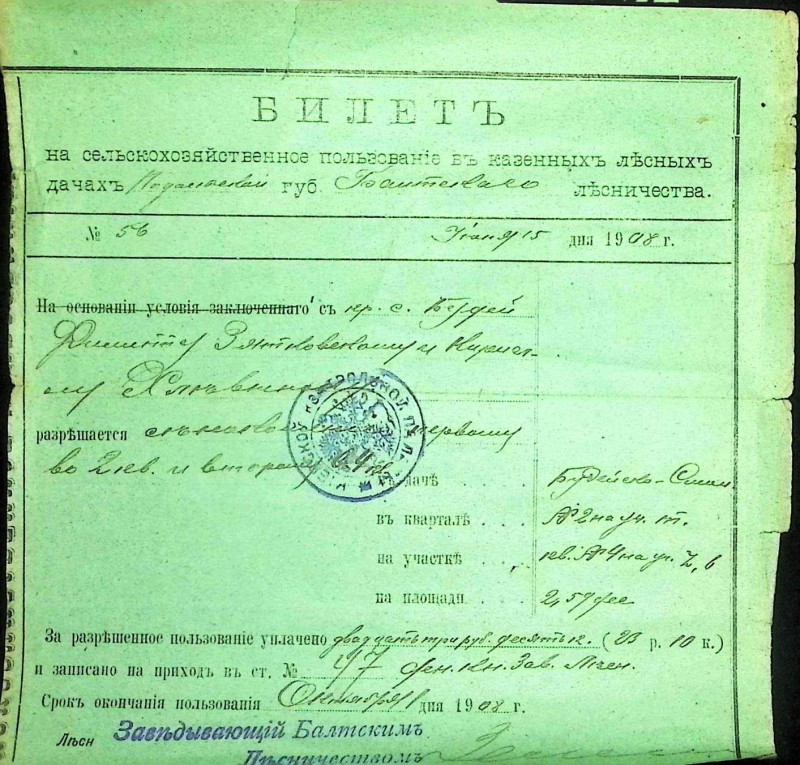 БИЛЕТЪ
на сельскохозяйственное пользованіе въ казенныхъ лѣсныхъ
дачахъ Подольской губ. Балтскаго лѣсничества.
№ 56 Іюня 15 дня 1908 г.
На основаніи условія заключеннаго съ кр. с. Будей
Димитрію Зятковскому и
разрѣшается первому
во 2 кв. и второму
дачѣ Будейско-
въ кварталѣ № 2 на уч. т.
на участкѣ кв. № 4 на уч.
на площади 2,59 дес
За разрѣшенное пользованіе уплачено двадцать три руб. десять к. (23 р. 10 к.)
и записано на приходъ въ ст. № 47 ден. кн. Зав. лѣсн.
Срокъ окончанія пользованія Октября 1 дня 1908 г.
Лѣсн Завѣдывающій Балтскимъ
Лѣсничествомъ